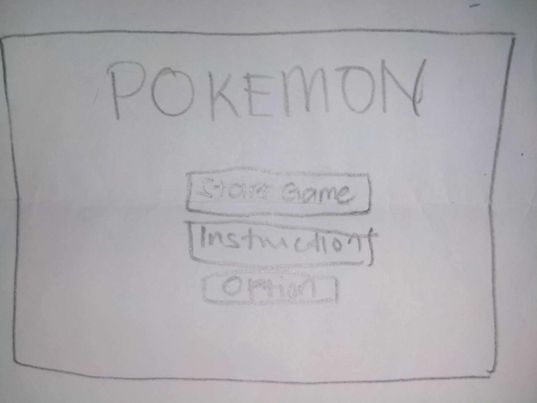 POKEMON
Start Game
Instructions
Option